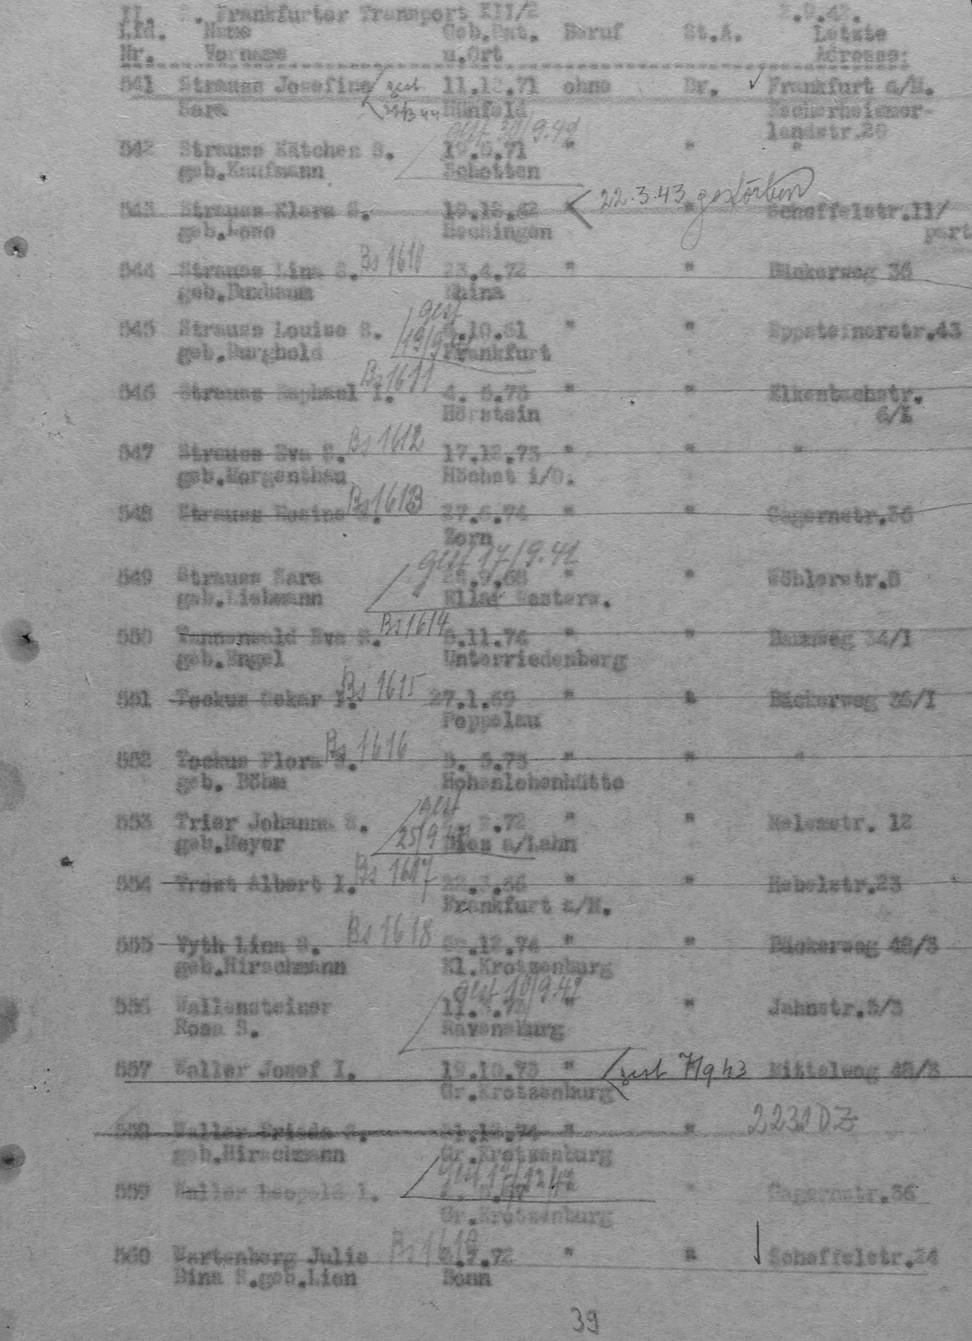 II. Frankfurter Transport XII/2 2.9.42.
Lfd. Name Geb.Dat. Beruf St.A. Letzte
Nr. Vorname u.Ort Adresse:
541 Strauss Josefine gest 11.12.71 ohne Dr. Frankfurt a/M.
Sara Hünfeld Eschersheimer-
landstr.20
gest 30/9.42
542 Strauss Kätchen S. 19.6.71 " " "
geb.Kaufmann Schotten
22.3.43 gestorben
543 Strauss Klara S. " Scheffelstr.11/
geb.Löwe Hechingen part
544 Strauss Lina S. Bs 1610 23.4.72 " " Bäckerweg 36
geb.Buxbaum Rhina
gest
545 Strauss Louise S. .10.61 " " Eppsteinerstr.43
geb.Burghold Frankfurt
546 Strauss Raphael I. Bs 1611 4. 5.73 " "
Hörstein
547 Strauss Eva S. Bs 1612 17.12.75 " " "
geb.Morgenthau Höchst i/O.
548 Strauss Rosine S. Bs 1613 27.6.74 " " Gagernstr.36
Zorn
gest 17/9.42
549 Strauss Sara .9.68 " " Wöhlerstr.8
geb.Liebmann Ellar Westerw.
550 Tannenwald Eva S. Bs 1614 5.11.74 " " Baumweg 34/I
geb.Engel Unterriedenberg
551 Tockus Oskar I. Bs 1615 27.1.69 " " Bäckerweg 36/I
Poppelau
552 Tockus Flora S. Bs 1616 5. 5.73 " " "
geb. Böhm Hohenlohenhütte
gest
553 Trier Johanna S. 25/9 .72 " " Melemstr. 12
geb.Meyer Diez a/Lahn
554 Trost Albert I. Bs 1617 22.3.66 " " Hebelstr.23
Frankfurt a/M.
555 Vyth Lina S. Bs 1618 .12.74 " " Bäckerweg 48/3
geb.Hirschmann Kl.Krotzenburg
gest 10/9.42
556 Wallensteiner 11. " " Jahnstr.3/3
Rosa S. Ravensburg
557 Waller Josef I. 19.10.73 " gest 7/9 43 Mittelweg 48/3
Gr.Krotzenburg
558 Waller Frieda S. .12.74 " " 2231 DZ
geb.Hirschmann Gr.Krotzenburg
gest 17/12 42
559 Waller Leopold I. " " Gagernstr.36
Gr.Krotzenburg
560 Wartenberg Julie Bs 1619 .7.72 " " Scheffelstr.24
Dina S.geb.Lion Bonn
39